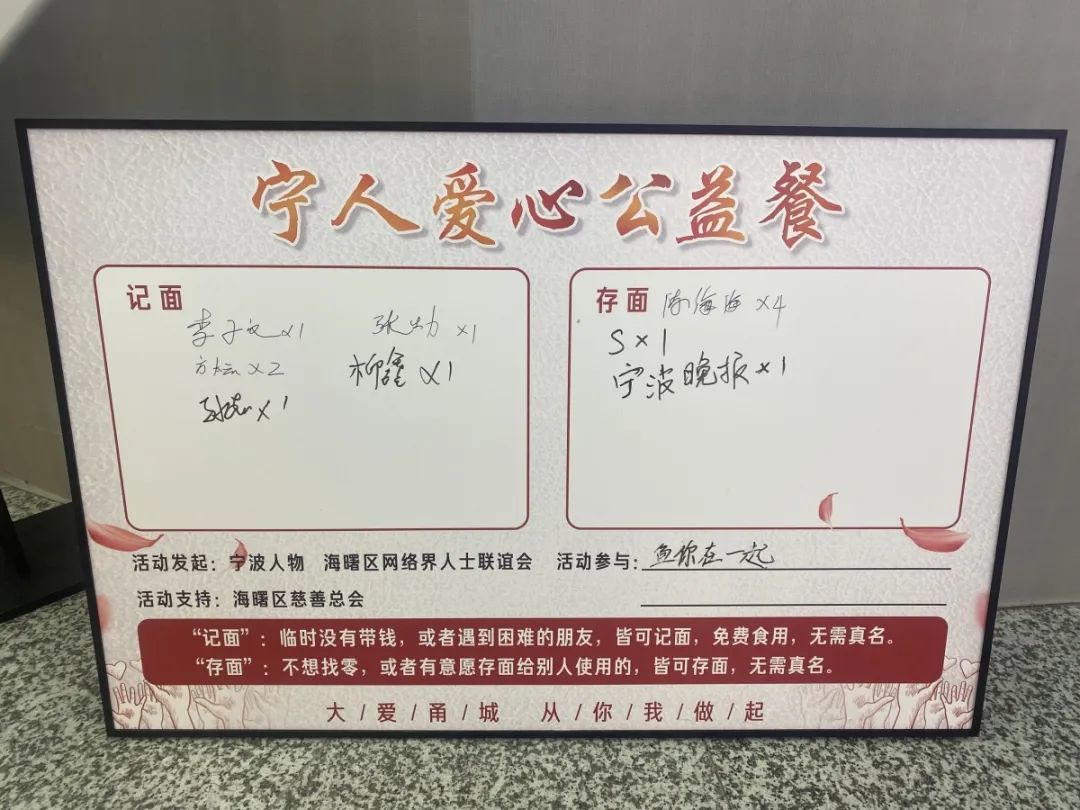 宁人爱心公益餐
记面
李子文×1 张力×1
方坛×2 柳鑫×1
×1
存面 海海×4
S×1
宁波晚报×1
活动发起：宁波人物 海曙区网络界人士联谊会 活动参与：鱼你在一起
活动支持：海曙区慈善总会
“记面”：临时没有带钱，或者遇到困难的朋友，皆可记面，免费食用，无需真名。
“存面”：不想找零，或者有意愿存面给别人使用的，皆可存面，无需真名。
大/爱/甬/城 从/你/我/做/起